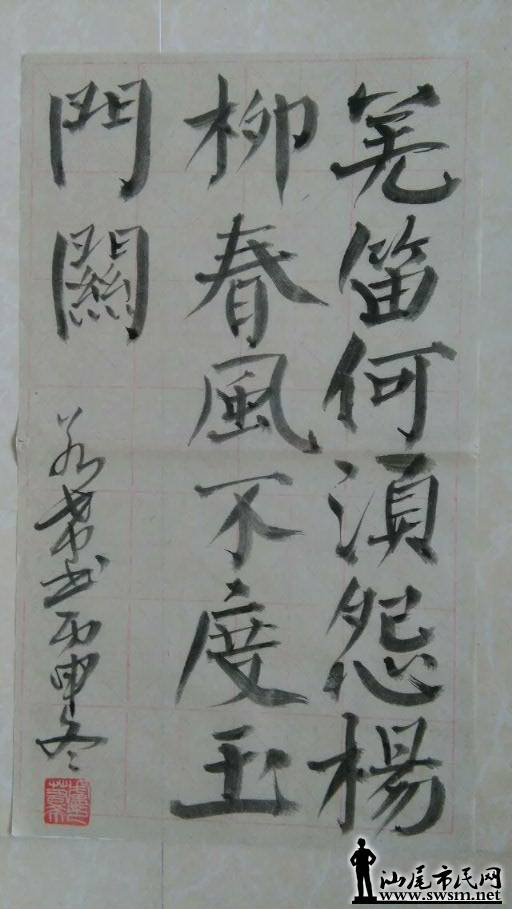 羌笛何須怨楊
柳春風不度玉
門關
书丙申冬
汕尾市民网
www.swsm.net